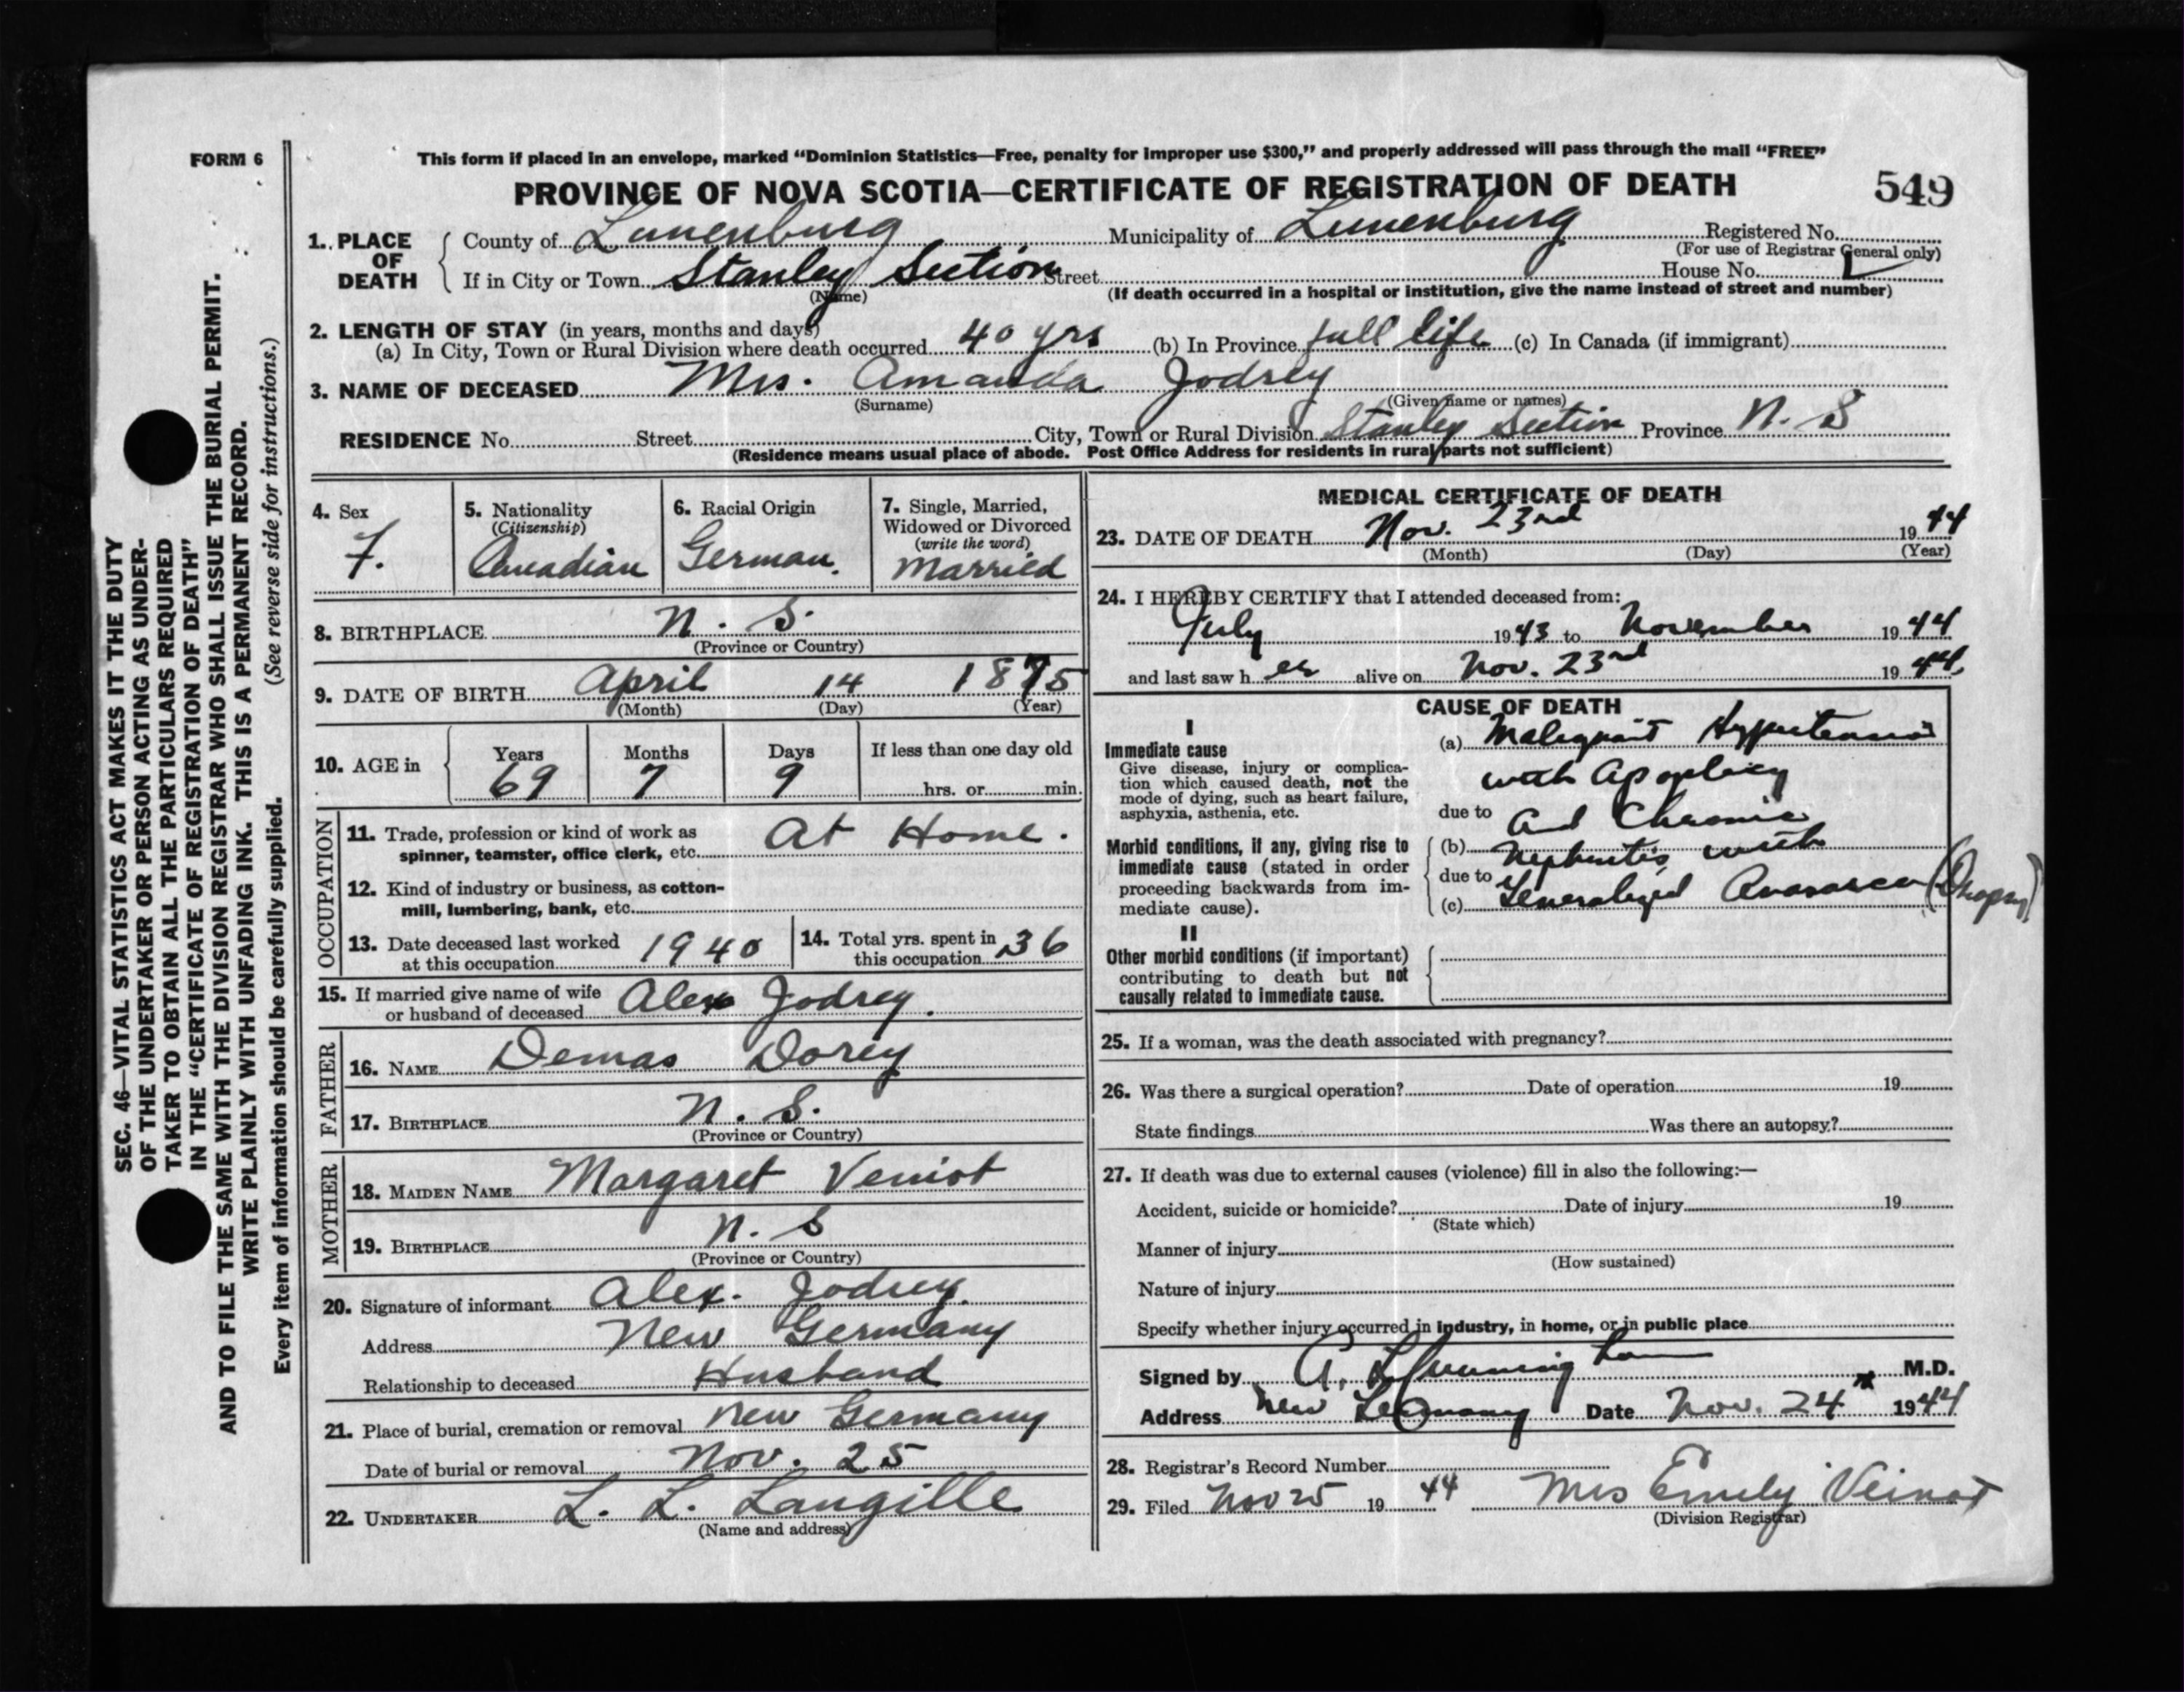 FORM 6
This form if placed in an envelope, marked “Dominion Statistics—Free, penalty for improper use $300,” and properly addressed will pass through the mail “FREE”
PROVINCE OF NOVA SCOTIA—CERTIFICATE OF REGISTRATION OF DEATH 549
1. PLACE OF DEATH County of Lunenburg Municipality of Lunenburg Registered No.
(For use of Registrar General only)
If in City or Town Stanley Section Street House No.
(Name) (If death occurred in a hospital or institution, give the name instead of street and number)
2. LENGTH OF STAY (in years, months and days)
(a) In City, Town or Rural Division where death occurred 40 yrs (b) In Province full life (c) In Canada (if immigrant)
3. NAME OF DECEASED Mrs. Amanda Jodrey
(Surname) (Given name or names)
RESIDENCE No. Street City, Town or Rural Division Stanley Section Province N. S
(Residence means usual place of abode. Post Office Address for residents in rural parts not sufficient)
4. Sex F.
5. Nationality
(Citizenship)
Canadian
6. Racial Origin
German.
7. Single, Married,
Widowed or Divorced
(write the word)
Married
8. BIRTHPLACE N. S.
(Province or Country)
9. DATE OF BIRTH April 14 1875
(Month) (Day) (Year)
10. AGE in Years Months Days If less than one day old
69 7 9 hrs. or min.
OCCUPATION
11. Trade, profession or kind of work as
spinner, teamster, office clerk, etc. At Home.
12. Kind of industry or business, as cotton-
mill, lumbering, bank, etc.
13. Date deceased last worked
at this occupation 1940
14. Total yrs. spent in
this occupation 36
15. If married give name of wife
or husband of deceased Alex Jodrey.
FATHER
16. NAME Demas Dorey
17. BIRTHPLACE N. S.
(Province or Country)
MOTHER
18. MAIDEN NAME Margaret Veniot
19. BIRTHPLACE N. S
(Province or Country)
20. Signature of informant Alex. Jodrey.
Address New Germany
Relationship to deceased Husband
21. Place of burial, cremation or removal New Germany
Date of burial or removal Nov. 25
22. UNDERTAKER L. L. Langille
(Name and address)
MEDICAL CERTIFICATE OF DEATH
23. DATE OF DEATH Nov. 23rd 1944
(Month) (Day) (Year)
24. I HEREBY CERTIFY that I attended deceased from:
July 1943 to November 1944
and last saw her alive on Nov. 23rd 1944
CAUSE OF DEATH
I
Immediate cause
Give disease, injury or complica-
tion which caused death, not the
mode of dying, such as heart failure,
asphyxia, asthenia, etc.
(a) Malignant Hypertension
with Apoplexy
due to and Chronic
Morbid conditions, if any, giving rise to
immediate cause (stated in order
proceeding backwards from im-
mediate cause).
(b) Nephritis with
due to
(c) Generalized Anasarca (Dropsy)
II
Other morbid conditions (if important)
contributing to death but not
causally related to immediate cause.
25. If a woman, was the death associated with pregnancy?
26. Was there a surgical operation? Date of operation 19
State findings Was there an autopsy?
27. If death was due to external causes (violence) fill in also the following:—
Accident, suicide or homicide? Date of injury 19
(State which)
Manner of injury
(How sustained)
Nature of injury
Specify whether injury occurred in industry, in home, or in public place
Signed by A. M.D.
Address New Germany Date Nov. 24 1944
28. Registrar's Record Number
29. Filed Nov 25 1944 Mrs Emily Veinot
(Division Registrar)
SEC. 46—VITAL STATISTICS ACT MAKES IT THE DUTY
OF THE UNDERTAKER OR PERSON ACTING AS UNDER-
TAKER TO OBTAIN ALL THE PARTICULARS REQUIRED
IN THE “CERTIFICATE OF REGISTRATION OF DEATH”
AND TO FILE THE SAME WITH THE DIVISION REGISTRAR WHO SHALL ISSUE THE BURIAL PERMIT.
WRITE PLAINLY WITH UNFADING INK. THIS IS A PERMANENT RECORD.
Every item of information should be carefully supplied. (See reverse side for instructions.)